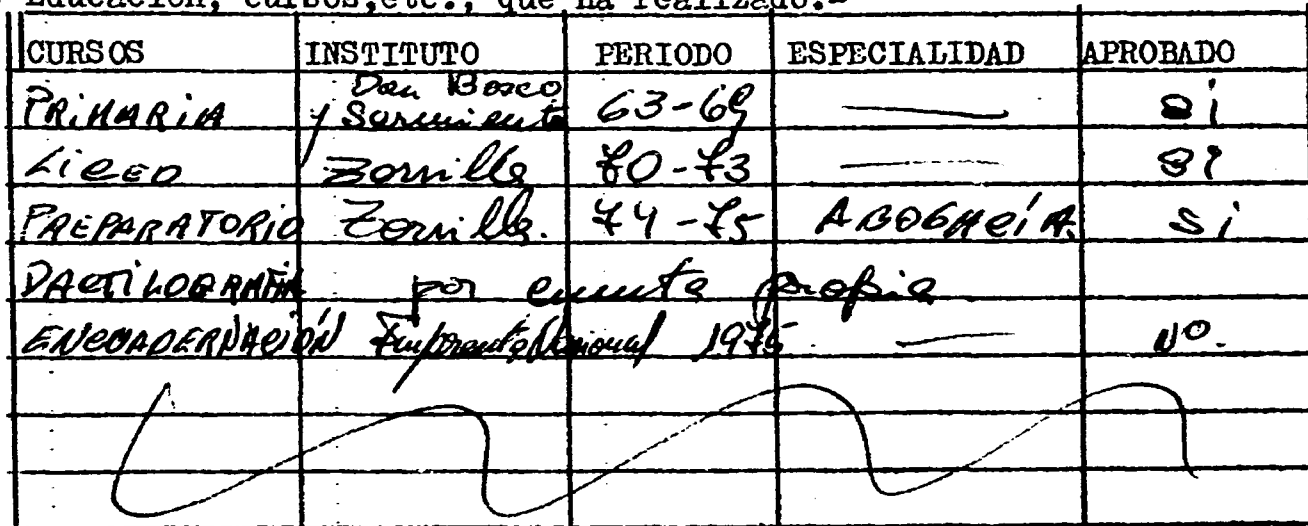 Educación, cursos,etc., que ha realizado.-
CURSOS INSTITUTO PERIODO ESPECIALIDAD APROBADO
PRIMARIA Don Bosco y Sarmiento 63-69 — si
LICEO Zorrilla 70-73 — si
PREPARATORIO Zorrilla. 74-75 ABOGACÍA. si
DACTILOGRAFÍA por cuenta propia
ENCUADERNACIÓN Nacional 1975 — no.